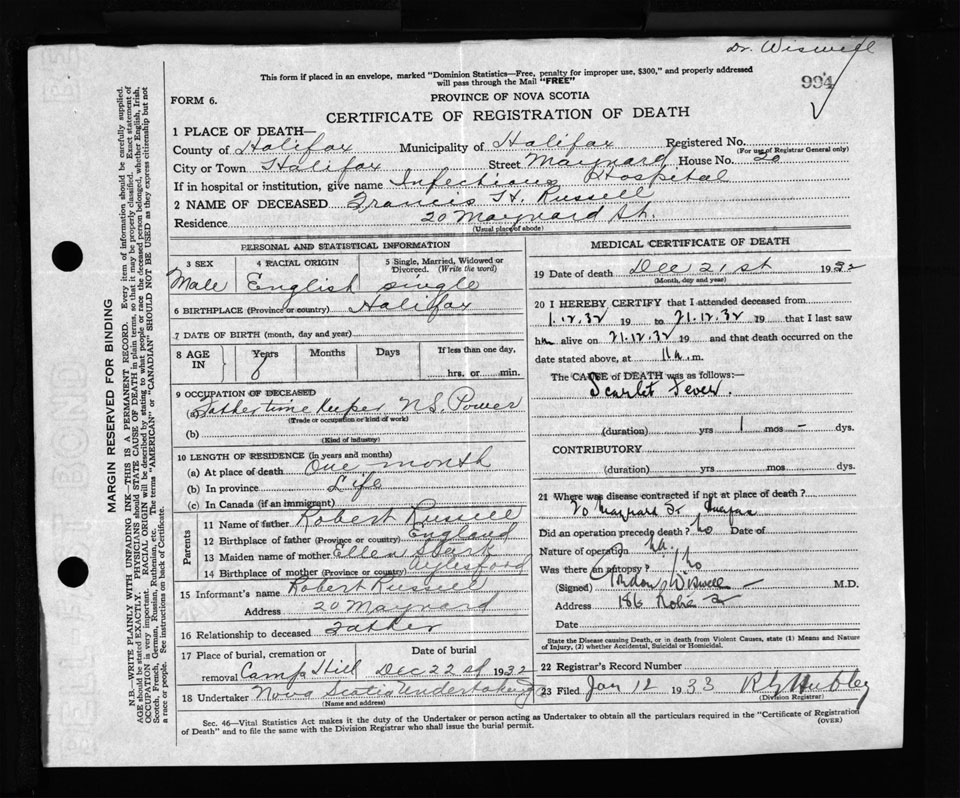 Dr. Wiswell
994
This form if placed in an envelope, marked "Dominion Statistics—Free, penalty for improper use, $300," and properly addressed
will pass through the Mail "FREE"
FORM 6.
PROVINCE OF NOVA SCOTIA
CERTIFICATE OF REGISTRATION OF DEATH
1 PLACE OF DEATH—
County of Halifax Municipality of Halifax Registered No.
(For use of Registrar General only)
City or Town Halifax Street Maynard House No. 20
If in hospital or institution, give name Infectious Hospital
2 NAME OF DECEASED Francis H. Russell
Residence 20 Maynard St.
(Usual place of abode)
PERSONAL AND STATISTICAL INFORMATION
3 SEX 4 RACIAL ORIGIN 5 Single, Married, Widowed or
Divorced. (Write the word)
Male English single
6 BIRTHPLACE (Province or country) Halifax
7 DATE OF BIRTH (month, day and year)
8 AGE IN Years Months Days If less than one day,
8 hrs. or min.
9 OCCUPATION OF DECEASED
(a) Father time Keeper N.S. Power
(Trade or occupation or kind of work)
(b)
(Kind of industry)
10 LENGTH OF RESIDENCE (in years and months)
(a) At place of death One month
(b) In province Life
(c) In Canada (if an immigrant)
Parents
11 Name of father Robert Russell
12 Birthplace of father (Province or country) England
13 Maiden name of mother Ellen
14 Birthplace of mother (Province or country) Aylesford
15 Informant's name Robert Russell
Address 20 Maynard
16 Relationship to deceased Father
17 Place of burial, cremation or Date of burial
removal Camp Hill Dec 22 st 1932
18 Undertaker Nova Scotia Undertaking
(Name and address)
MEDICAL CERTIFICATE OF DEATH
19 Date of death Dec 21st 1932
(Month, day and year)
20 I HEREBY CERTIFY that I attended deceased from
1.12.32 19 to 21.12.32 19 that I last saw
h alive on 21.12.32 19 and that death occurred on the
date stated above, at 11 a.m.
The CAUSE of DEATH was as follows:—
Scarlet Fever.
(duration) yrs 1 mos - dys.
CONTRIBUTORY
(duration) yrs. mos. dys.
21 Where was disease contracted if not at place of death?
20 Maynard St Halifax
Did an operation precede death? No Date of
Nature of operation
Was there an autopsy? No
(Signed) Wiswell M.D.
Address 186 St
Date
State the Disease causing Death, or in death from Violent Causes, state (1) Means and Nature
of Injury, (2) whether Accidental, Suicidal or Homicidal.
22 Registrar's Record Number
23 Filed Jan 12 1933
(Division Registrar)
Sec. 46—Vital Statistics Act makes it the duty of the Undertaker or person acting as Undertaker to obtain all the particulars required in the "Certificate of Registration
of Death" and to file the same with the Division Registrar who shall issue the burial permit. (OVER)
MARGIN RESERVED FOR BINDING
N.B.—WRITE PLAINLY WITH UNFADING INK—THIS IS A PERMANENT RECORD. Every item of information should be carefully supplied.
AGE should be stated EXACTLY. PHYSICIANS should STATE CAUSE OF DEATH in plain terms, so that it may be properly classified. Exact statement of
OCCUPATION is very important. RACIAL ORIGIN will be described by stating to what people or race the deceased person belonged, whether English, Irish,
Scotch, French, German, Russian, Ruthenian, etc. The terms "AMERICAN" or "CANADIAN" SHOULD NOT BE USED as they express citizenship but not
a race or people. See instructions on back of Certificate.